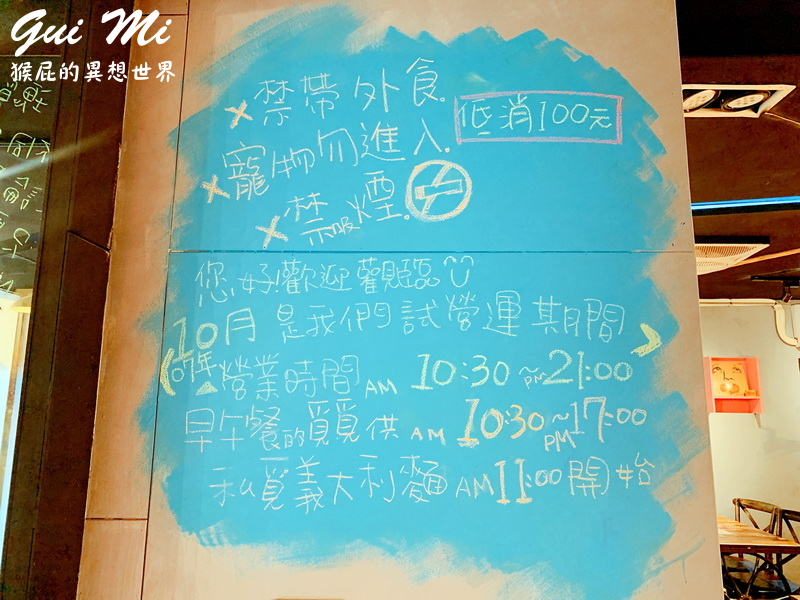 Gui Mi
猴屁的異想世界
×禁帶外食.
低消100元
×寵物勿進入.
×禁吸煙.
您好!歡迎觀臨
10月是我們試營運期間
07年
營業時間AM 10:30~PM21:00
早午餐的覓覓供AM 10:30~PM17:00
私覓義大利麵AM11:00開始